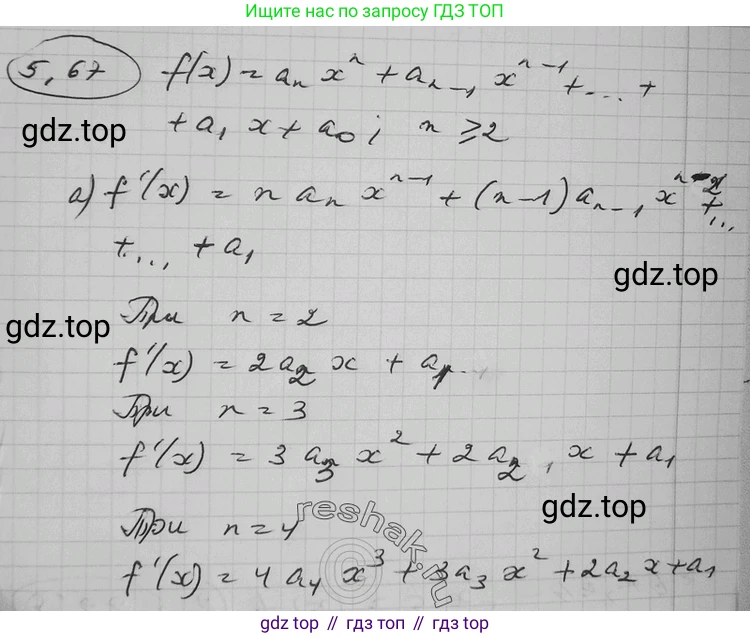 Ищите нас по запросу ГДЗ ТОП
5,67 f(x) = aₙ xⁿ + aₙ₋₁ xⁿ⁻¹ + ... +
+ a₁ x + a₀; n ≥ 2
gdz.top
а) f'(x) = n aₙ xⁿ⁻¹ + (n-1) aₙ₋₁ xⁿ⁻² + ...
+ ... + a₁
gdz.top
При n = 2
gdz.top
f'(x) = 2a₂ x + a₁
При n = 3
f'(x) = 3 a₃ x² + 2 a₂ x + a₁
gdz.top
При n = 4
reshak.ru
f'(x) = 4 a₄ x³ + 3a₃ x² + 2a₂ x + a₁
gdz.top // гдз топ // gdz.top